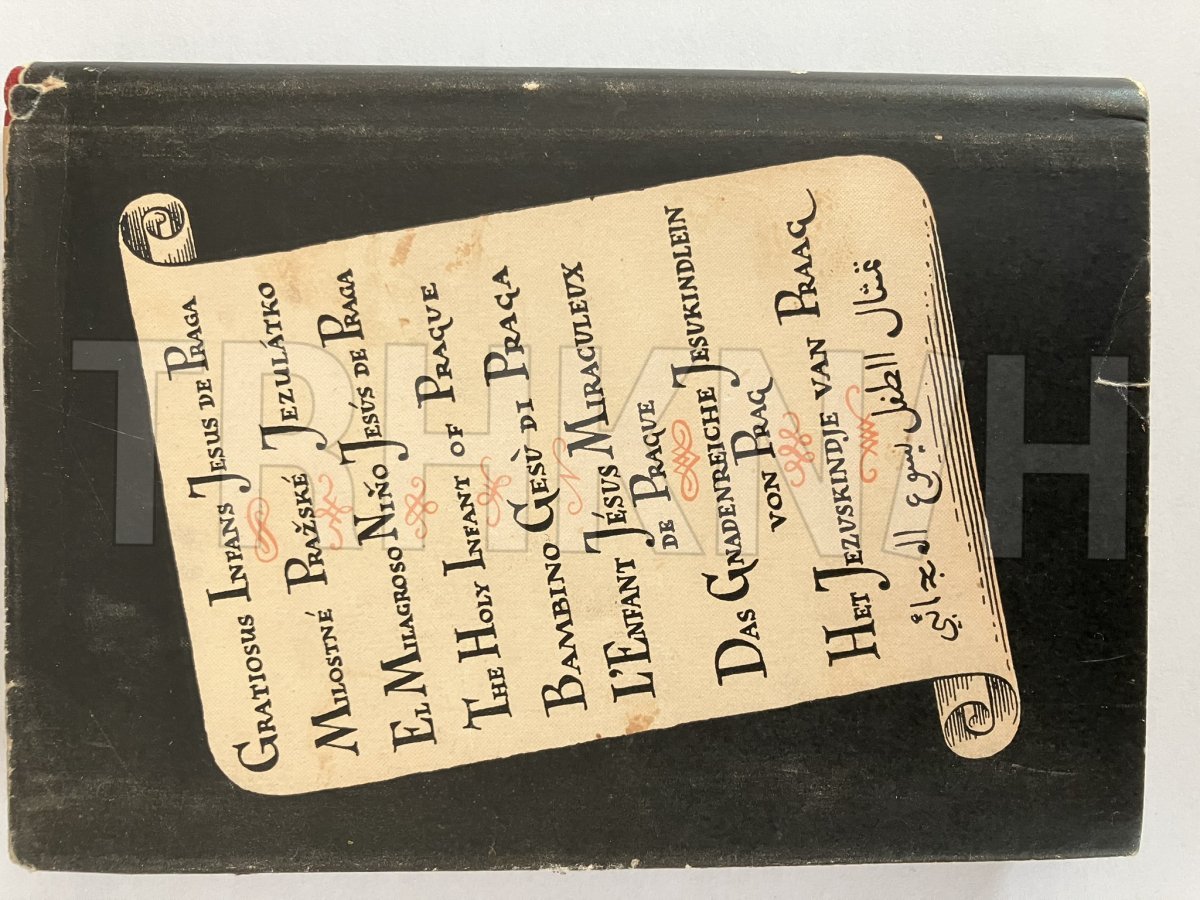 Gratiosus Infans Jesus de Praga
Milostné Pražské Jezulátko
El Milagroso Niño Jesús de Praga
The Holy Infant of Prague
Bambino Gesù di Praga
L'Enfant Jésus Miraculeux
de Prague
Das Gnadenreiche Jesukindlein
von Prag
Het Jezuskindje van Praag
تمثال الطفل يسوع العجائبي
TRHKNIH